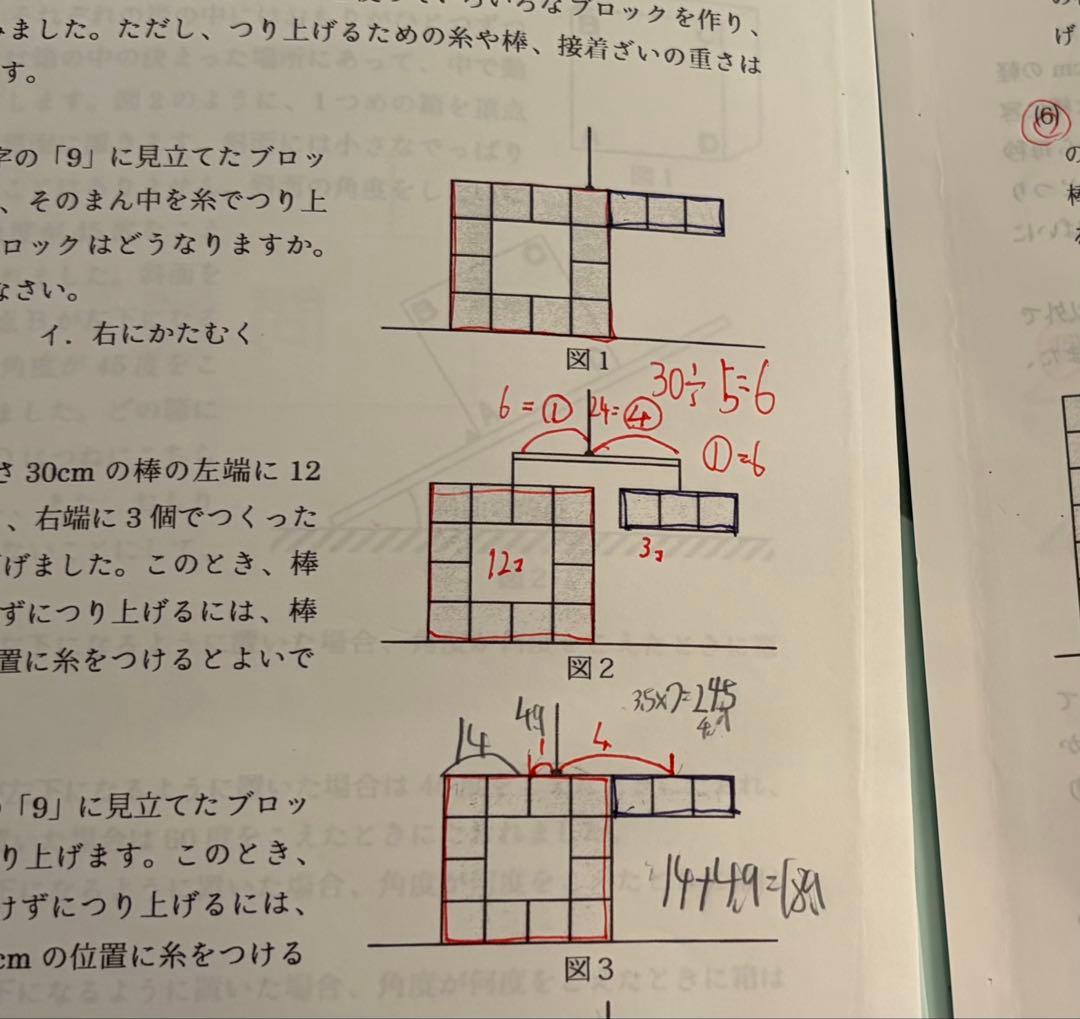 いろいろなブロックを作り、
みました。ただし、つり上げるための糸や棒、接着ざいの重さは
す。
字の「9」に見立てたブロッ
、そのまん中を糸でつり上
ブロックはどうなりますか。
なさい。
イ．右にかたむく
図1
6=① 24=④ 30÷5=6
①=6
さ 30cm の棒の左端に 12
、右端に 3 個でつくった
げました。このとき、棒
ずにつり上げるには、棒
置に糸をつけるとよいで
12コ
3コ
図2
「9」に見立てたブロッ
り上げます。このとき、
けずにつり上げるには、
cm の位置に糸をつける
14 4.9 1 4
3.5×7=24.5
14+4.9=18.9
図3
げ
(6)
の
棒